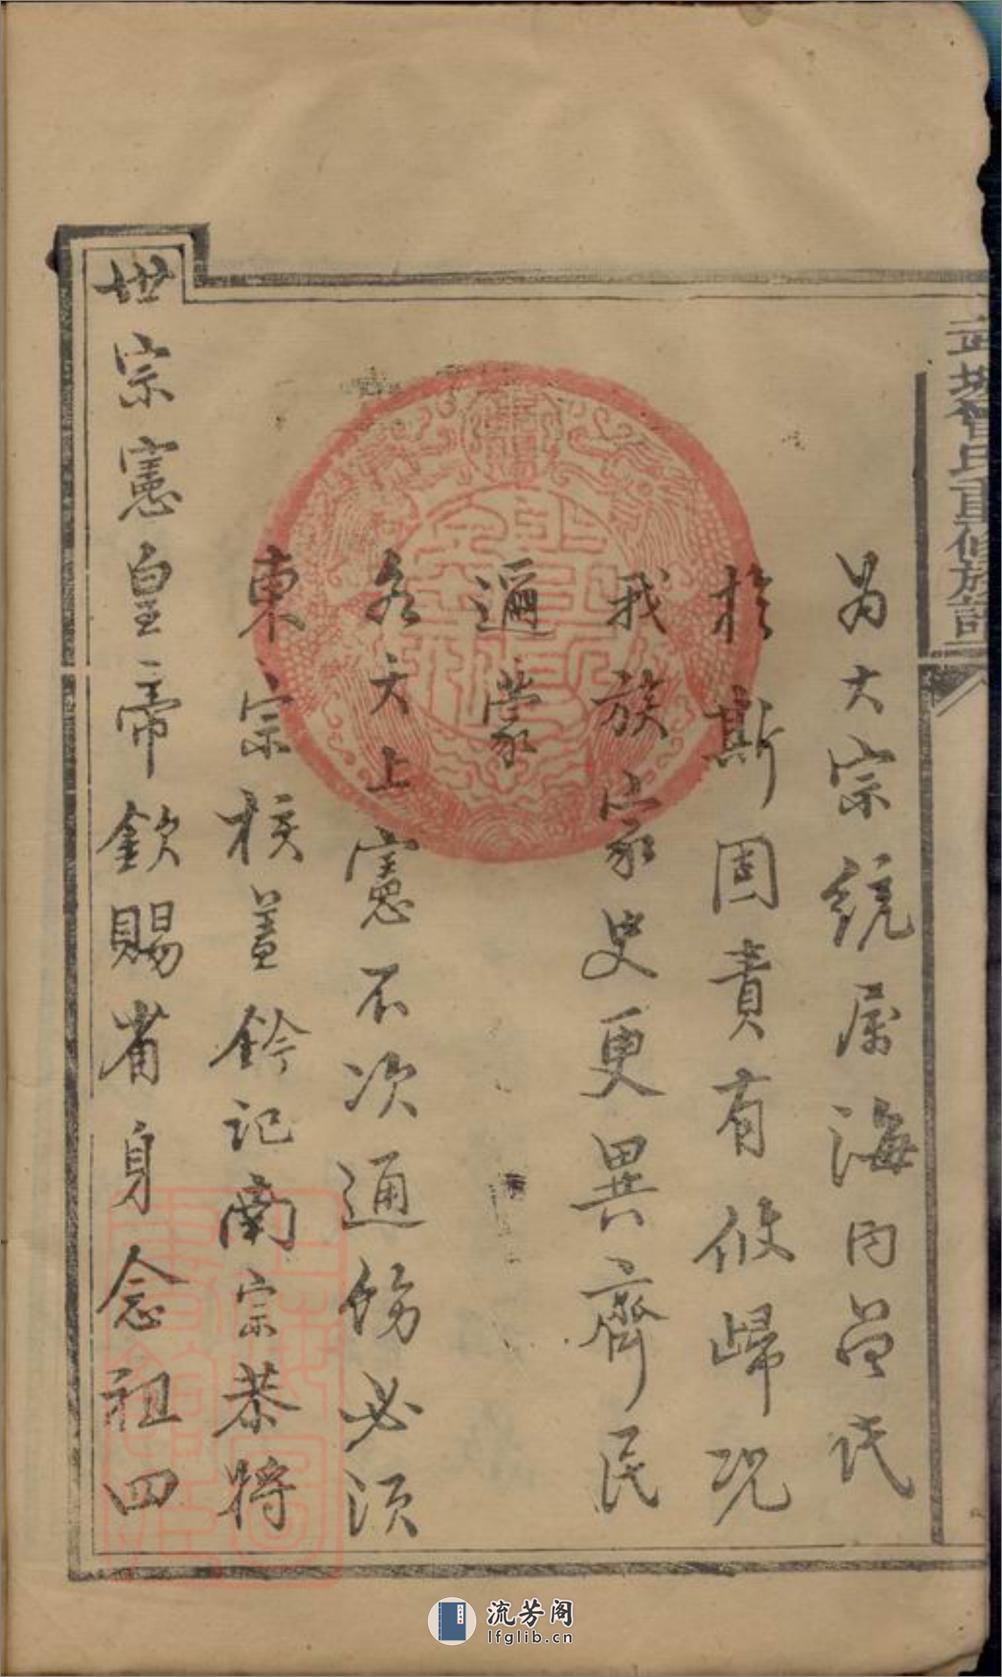 武城曾氏重修族譜
為大宗統属海内曾氏
於斯固責有攸歸况
我族家史更異齊民
邇蒙
各大上憲不次通飭必須
東宗核蓋鈐記南宗恭將
世宗憲皇帝欽賜省身念祖四
流芳阁
lfglib.cn